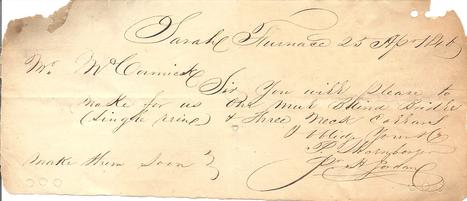 Sarah Furnace 25 Apr 1846
Mr. McCormick Sir You will please to
make for us one mule Blind Bridle
(single reins) & three Neck Collars
oblidg Yours &c
P Shoenberger
pr H Jordan
make them soon